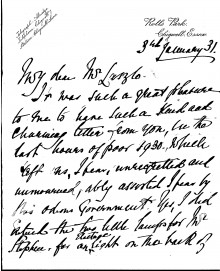 Rolls Park,
Chigwell, Essex
3rd January 31.
My dear Mr Laszlo.
It was such a great pleasure
to me to have such a kind and
charming letter from you, in the
last hours of poor 1930. Which
left us, I fear, unregretted and
unmourned, ably assisted I fear by
this odious Government! Yes, I did
attach the two little lamps for Mr
Stephen, for electric light on the back of